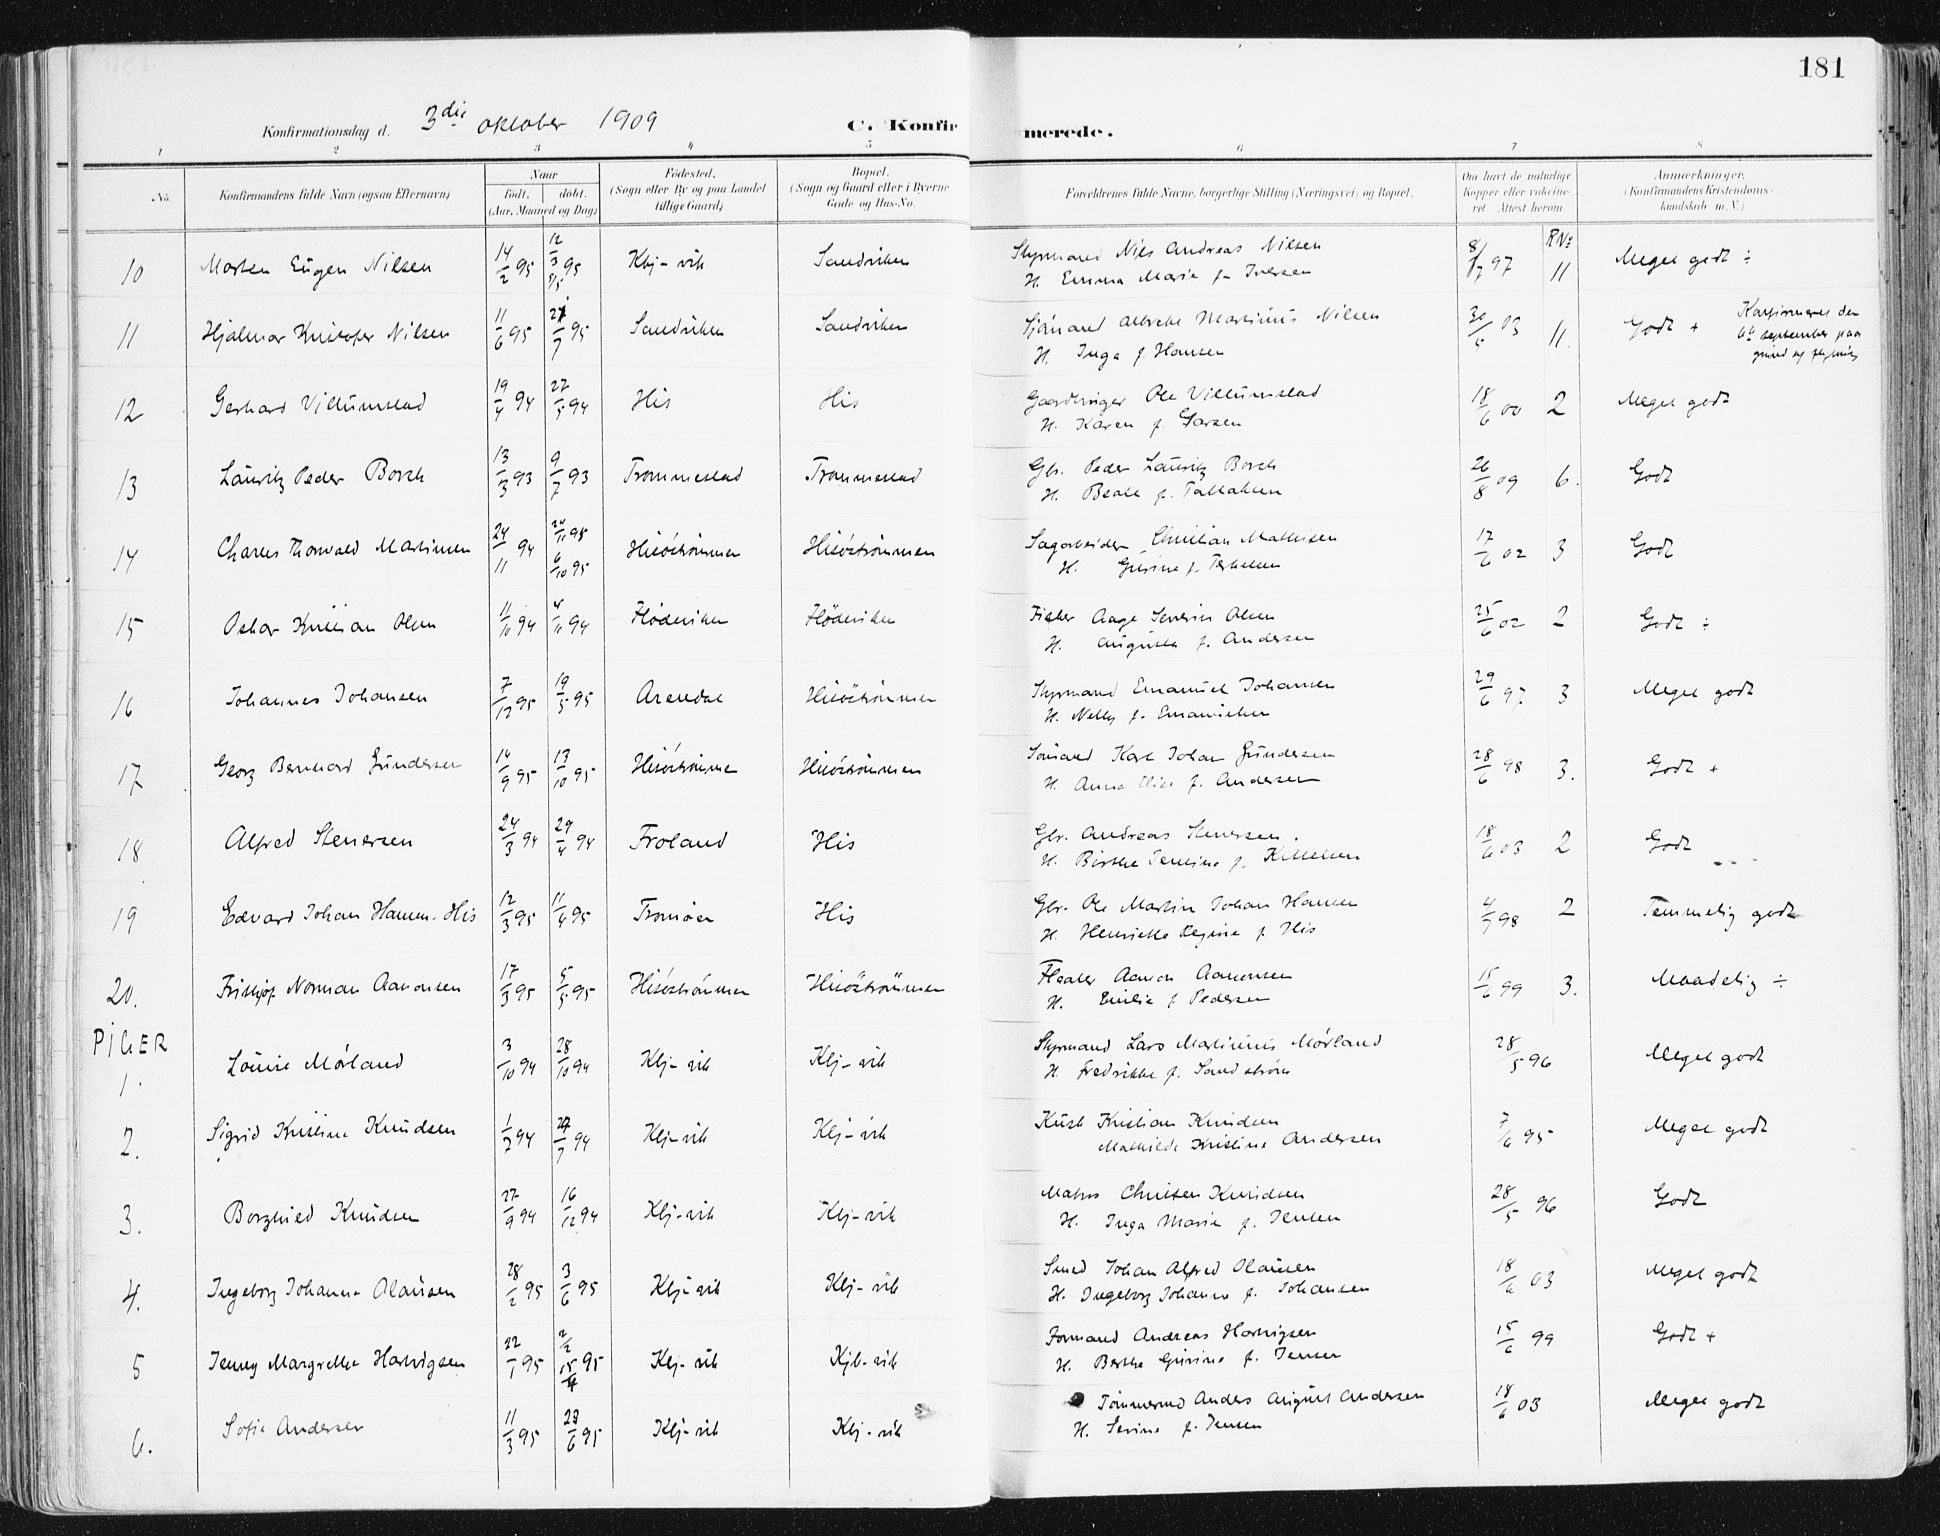 181
Konfirmationsdag d. 3die oktober 1909 C. Konfirmerede.
1 2 3 4 5 6 7 8
No. Konfirmandens fulde Navn (ogsaa Efternavn) Naar født. døbt. (Aar, Maaned og Dag) Fødested. (Sogn eller By og paa Landet tillige Gaard) Bopæl. (Sogn og Gaard eller i Byerne Gade og Hus-No. Forældrenes fulde Navne, borgerlige Stilling (Næringsvei) og Bopæl. Om havt de naturlige Kopper eller vaccineret. Attest herom. Anmærkninger. (Konfirmandens Kristendomskundskab m. V.)
R No
10 Morten Eugen Nilsen 14/2 95 12/3 95 5/5 Kbj-vik Sandviken Styrmand Nils Andreas Nilsen 8/7 97 11 Meget godt ÷
H. Emma Marie f. Iversen
11 Hjalmar Kristofer Nilsen 11/6 95 21/7 95 Sandviken Sandviken Sjömand Albreht Martinius Nilsen 30/5 03 11. Godt + Konfirmeret den
H. Inga f. Hansen 6te september paa
grund af flytning
12 Gerhard Villumstad 19/4 94 27/5 94 His His Gaardbruger Ole Villumstad 18/6 00 2 Meget godt
H. Karen f. Larsen
13 Lauritz Peder Borch 13/3 93 9/7 93 Trommestad Trommestad Gbr. Peder Lauritz Borch 26/8 09 6. Godt
H. Beate f. Tallaksen
14 Charles Thorvald Martinsen 24/11 94 20/11 98 6/10 95 Hisöströmmen Hisöströmmen Sagarbeider Christian Mathisen 17/6 02 3 Godt
H. Gurine f. Terkelsen
15 Oskar Kristian Olsen 11/10 94 4/11 94 Flödeviken Flödeviken Fisker Aage Severin Olsen 25/6 02 2 Godt ÷
H. Augusta f. Andersen
16 Johannes Johansen 7/12 95 19/5 95 Arendal Hisöströmmen Styrmand Emanuel Johansen 29/6 97 3 Meget godt
H. Nelly f. Emanuelsen
17 Georg Bernhard Gundersen 14/9 95 13/10 95 Hisöströmmen Hisöströmmen Sömand Karl Johan Gundersen 28/6 98 3. Godt +
H. Anna Elise f. Andersen
18 Alfred Stenersen 24/3 94 29/4 94 Froland His Gbr. Andreas Stenersen. 18/6 03 2 Godt
H. Birthe Temine f. Kittelsen
19 Edvard Johan Hansen-His 12/3 95 11/4 95 Tromöen His Gbr. Ole Martin Johan Hansen 4/7 98 2 Temmelig godt
H. Henriette Regine f. His
20. Frithjof Norman Aanonsen 17/3 95 5/5 95 Hisöströmmen Hisöströmmen Aanon Aanonsen 15/6 99 3. Maadelig ÷
H. Emilie f. Pedersen
PIGER
1. Louise Mörland 3/10 94 28/10 94 Kbj-vik Kbj-vik Styrmand Lars Martinius Mörland 28/5 96 Meget godt
H. Fredrikke f. Sandström
2. Sigrid Kristine Knudsen 1/7 94 27/7 94 Kbj-vik Kbj-vik Kusk Kristian Knudsen 7/6 95 Meget godt
Mathilde Kristine Andersen
3. Borghild Knudsen 27/9 94 16/12 94 Kbj-vik Kbj-vik Matros Christen Knudsen 28/5 96 Godt
H. Inga Marie f. Jensen
4. Ingeborg Johanne Olausen 28/2 95 3/6 95 Kbj-vik Kbj-vik Smed Johan Alfred Olausen 18/6 03 Meget godt
H. Ingeborg Johanne f. Johansen
5 Jenny Margrethe Hartvigsen 22/1 95 2/2 15/4 95 Kbj-vik Kjb-vik Formand Andreas Hartvigsen 15/6 99 Godt +
H. Berthe Gurine f. Jensen
6. Sofie Andersen 11/3 95 23/6 95 Kbj-vik Kbj-vik Tömmermd Anders August Andersen 18/6 03 Meget godt
H. Serine f. Jensen